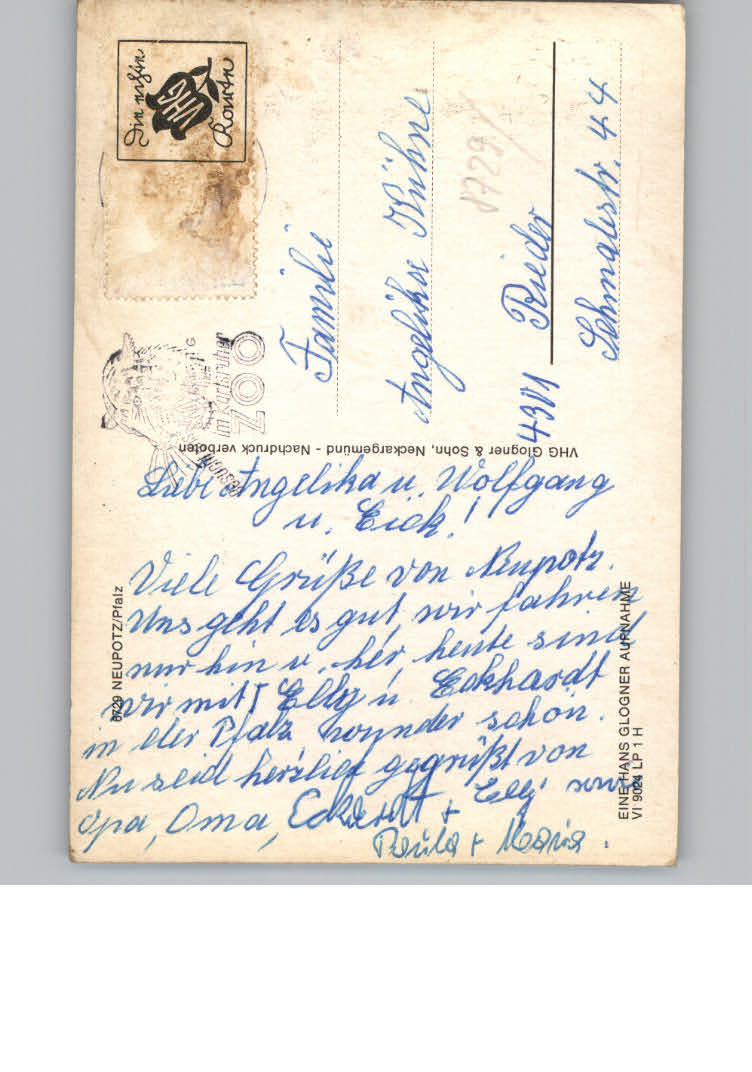 Die nechte
Karte
VHG
BESUCHT
ZOO
Familie
Angelika Kühne
8729
4301 Rieder
Schmalestr. 44
VHG Glogner & Sohn, Neckargemünd - Nachdruck verboten
Liebe Angelika u. Wolfgang
u. Eick!
Viele Grüße von Neupotz.
Uns geht es gut, wir fahren
nur hin u. her, heute sind
wir mit Elly u. Eckhardt
in der Pfalz wunder schön.
Nu seid herzlich gegrüßt von
Opa, Oma, Eckhardt + Elly sowie
Paula + Maria.
6729 NEUPOTZ/Pfalz
EINE HANS GLOGNER AUFNAHME
VI 9024 LP 1 H